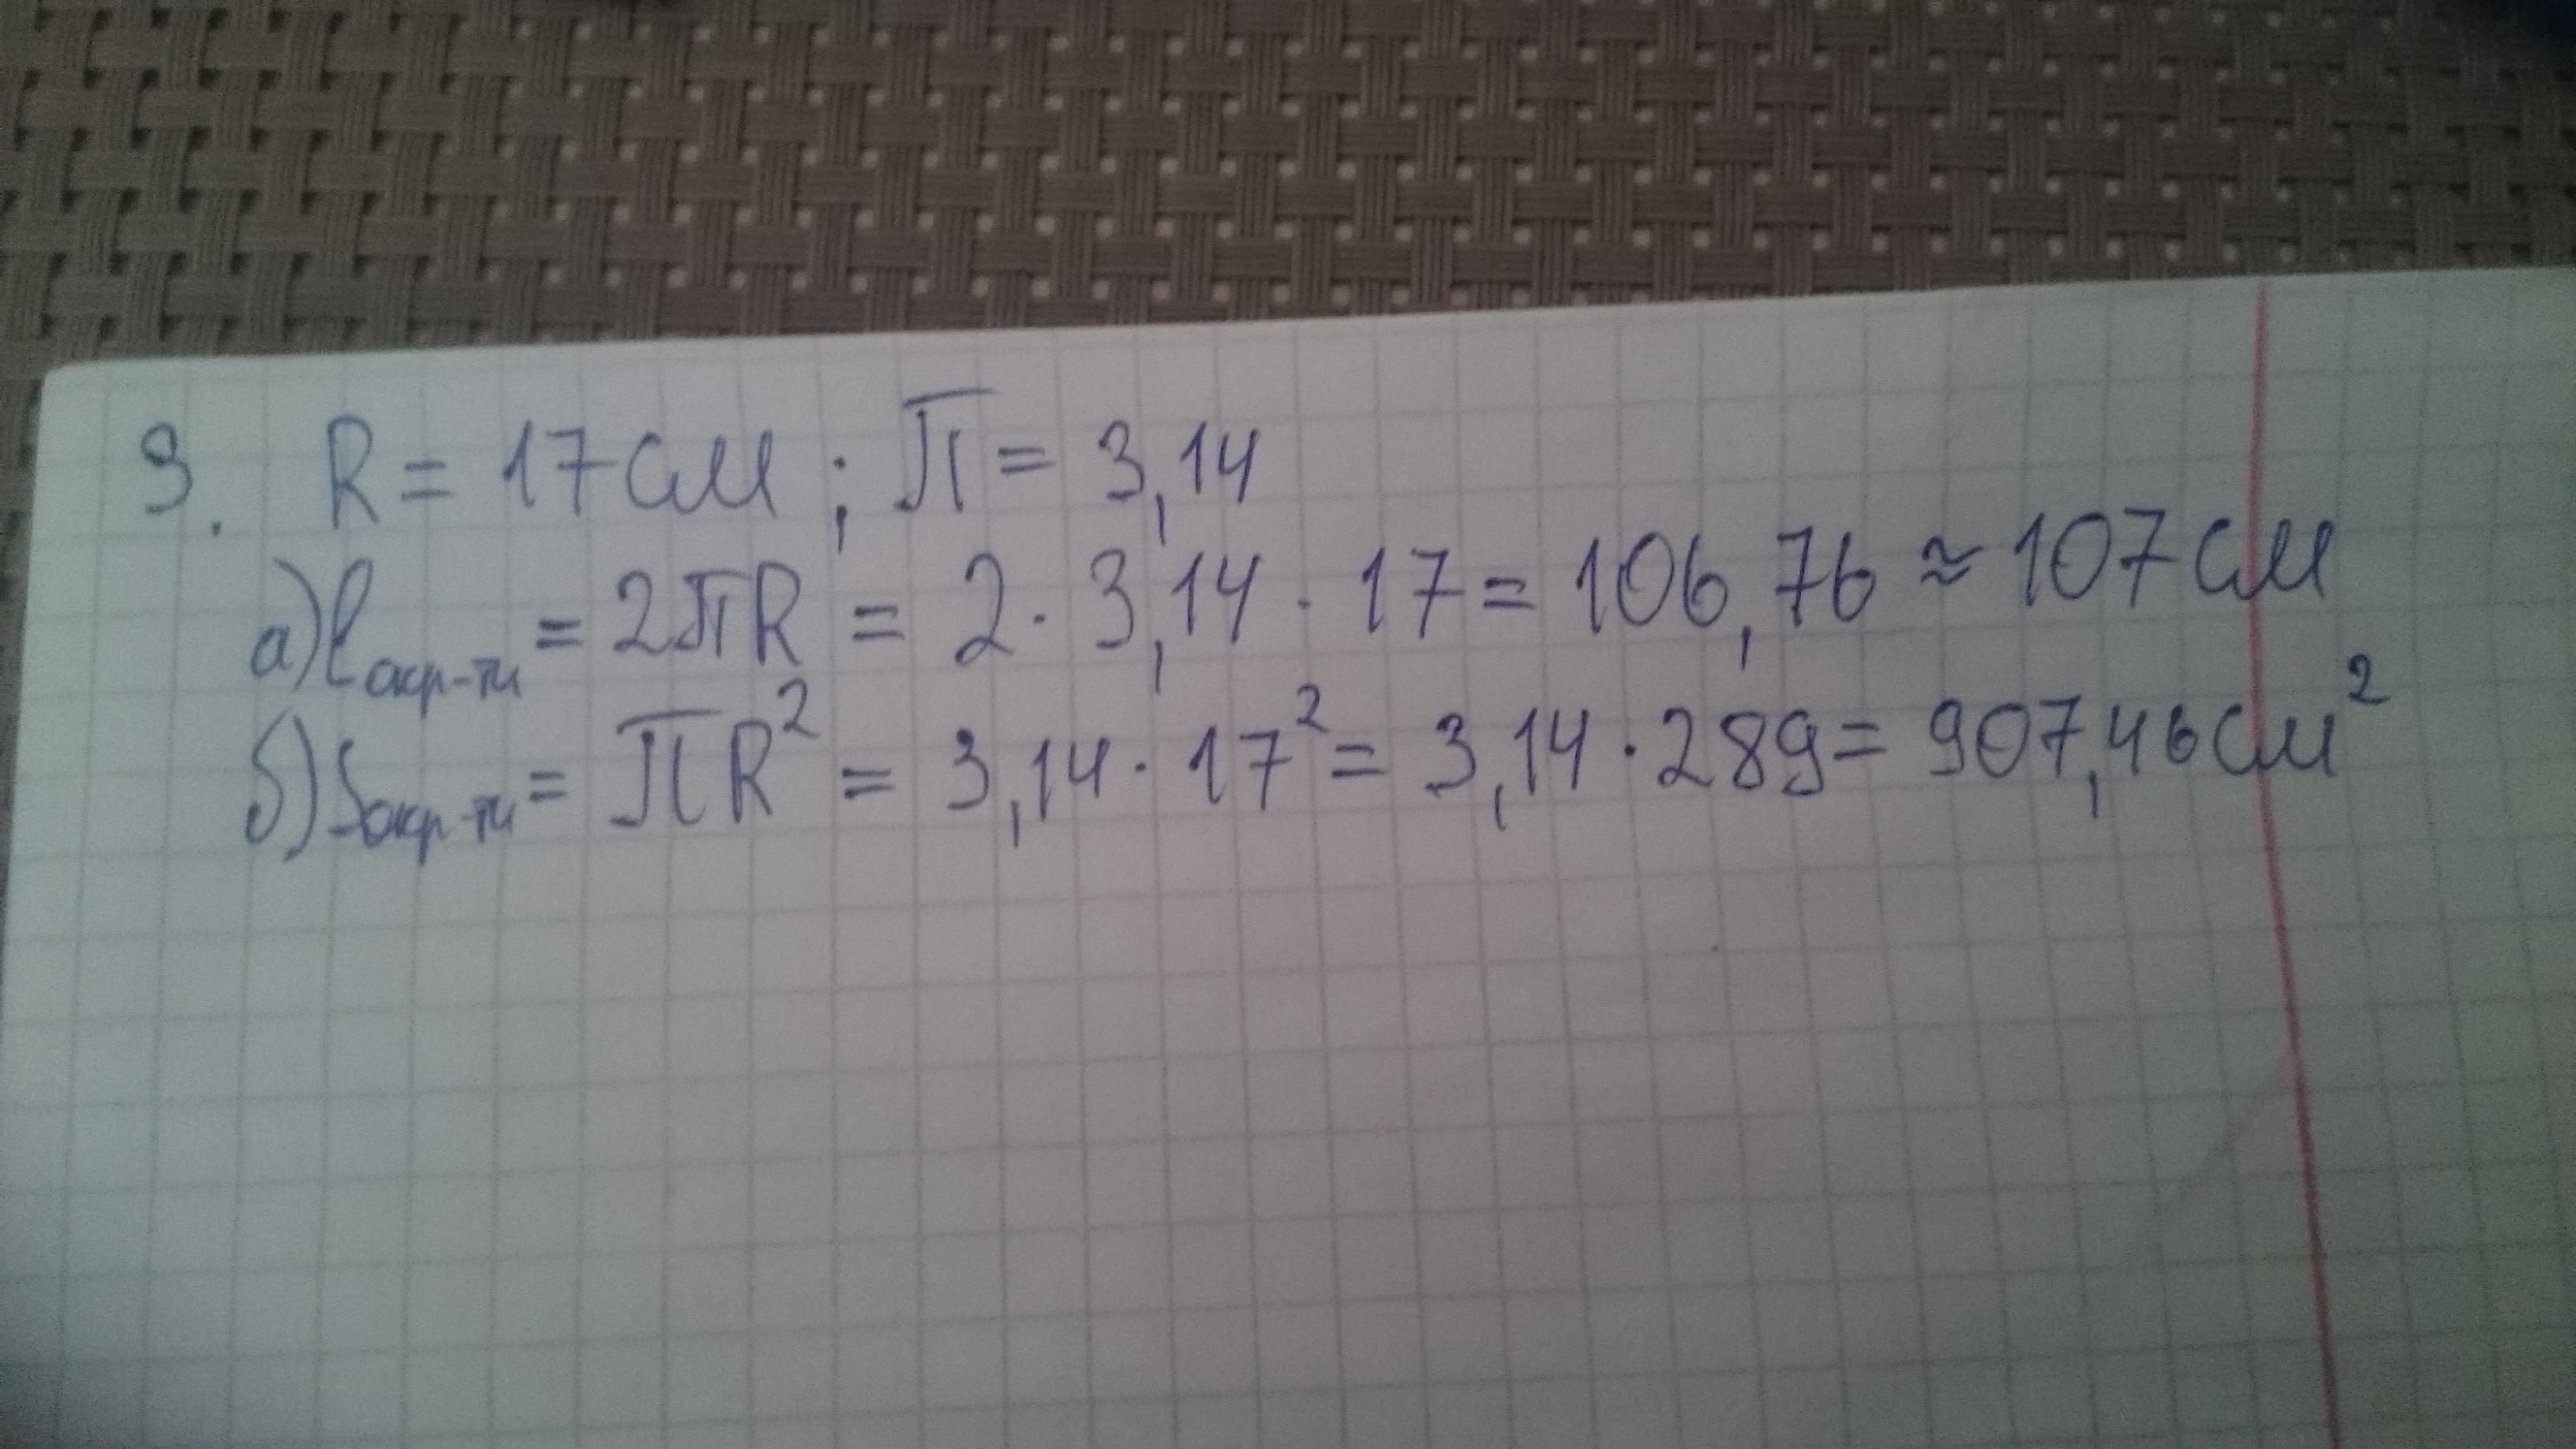 9. R = 17 см ; π = 3,14
а) lокр-ти = 2πR = 2 · 3,14 · 17 = 106,76 ≈ 107 см
б) Sокр-ти = πR² = 3,14 · 17² = 3,14 · 289 = 907,46 см²